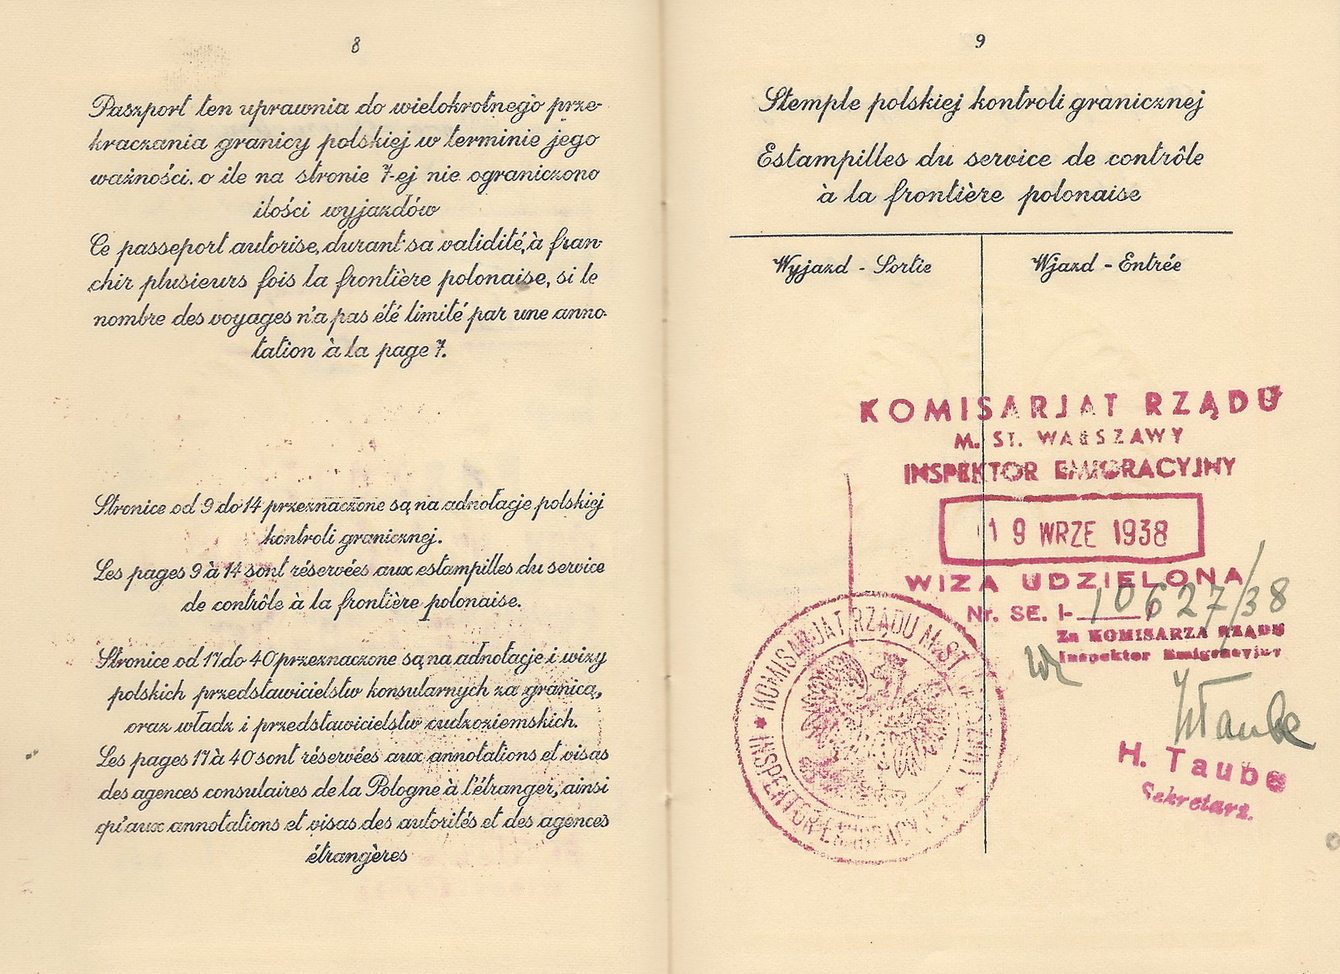 8
Paszport ten uprawnia do wielokrotnego prze-
kraczania granicy polskiej w terminie jego
ważności. o ile na stronie 7-ej nie ograniczono
ilości wyjazdów
Ce passeport autorise, durant sa validité, à fran-
chir plusieurs fois la frontière polonaise, si le
nombre des voyages n'a pas été limité par une anno-
tation à la page 7.
Stronice od 9 do 14 przeznaczone są na adnotacje polskiej
kontroli granicznej.
Les pages 9 à 14 sont réservées aux estampilles du service
de contrôle à la frontière polonaise.
Stronice od 17 do 40 przeznaczone są na adnotacje i wizy
polskich przedstawicielstw konsularnych za granicą,
oraz władz i przedstawicielstw cudzoziemskich.
Les pages 17 à 40 sont réservées aux annotations et visas
des agences consulaires de la Pologne à l'étranger, ainsi
qu'aux annotations et visas des autorités et des agences
étrangères
9
Stemple polskiej kontroli granicznej
Estampilles du service de contrôle
à la frontière polonaise
Wyjazd - Sortie
Wjazd - Entrée
KOMISARJAT RZĄDU
M. ST. WARSZAWY
INSPEKTOR EMIGRACYJNY
19 WRZE 1938
WIZA UDZIELONA
Nr. SE. I- 10627/38
Za KOMISARZA RZĄDU
Inspektor Emigracyjny
wz
HTaube
H. Taube
Sekretarz.
KOMISARJAT RZĄDU M. ST. WARSZAWY
INSPEKTOR EMIGRACYJNY